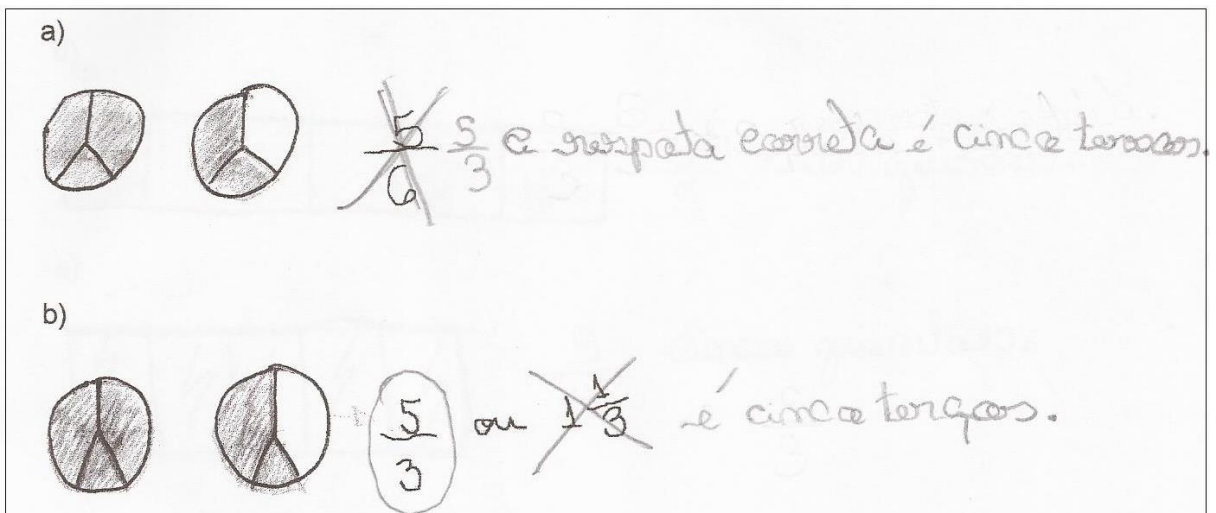 a)
5/6 5/3 a respata correta é cinco terços.
b)
5/3 ou 1 1/3 é cinco terços.